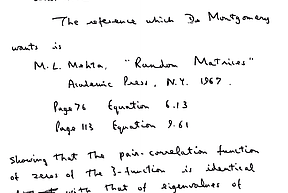 The reference which Dr Montgomery
wants is
M. L. Mehta, "Random Matrices"
Academic Press, N.Y. 1967.
Page 76 Equation 6.13
Page 113 Equation 9.61
Showing that the pair-correlation function
of zeros of the 3-function is identical
with that of eigenvalues of